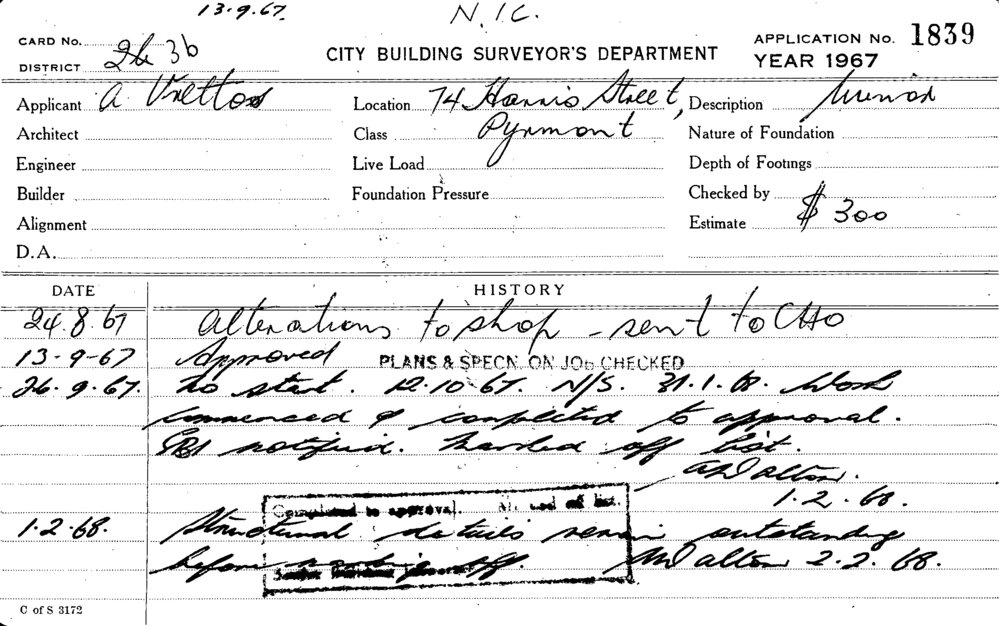 13.9.67. N.I.C.
CARD No. 2h 3b
DISTRICT
CITY BUILDING SURVEYOR'S DEPARTMENT
APPLICATION No. 1839
YEAR 1967
Applicant A Vrettos Location 74 Harris Street, Description Minor
Architect Class Pyrmont Nature of Foundation
Engineer Live Load Depth of Footings
Builder Foundation Pressure Checked by
Alignment Estimate $300
D.A.
DATE HISTORY
24.8.67 Alterations to shop - sent to CHO
13-9-67 Approved PLANS & SPECN. ON JOB CHECKED
26.9.67. No start. 12.10.67. N/S. 31.1.68. Work
commenced & completed to approval.
notified. Marked off list.
Dalton.
1.2.68.
Completed to approval. off list.
1.2.68. Structural details remain outstanding
before marking off. Dalton 2.2.68.
C of S 3172